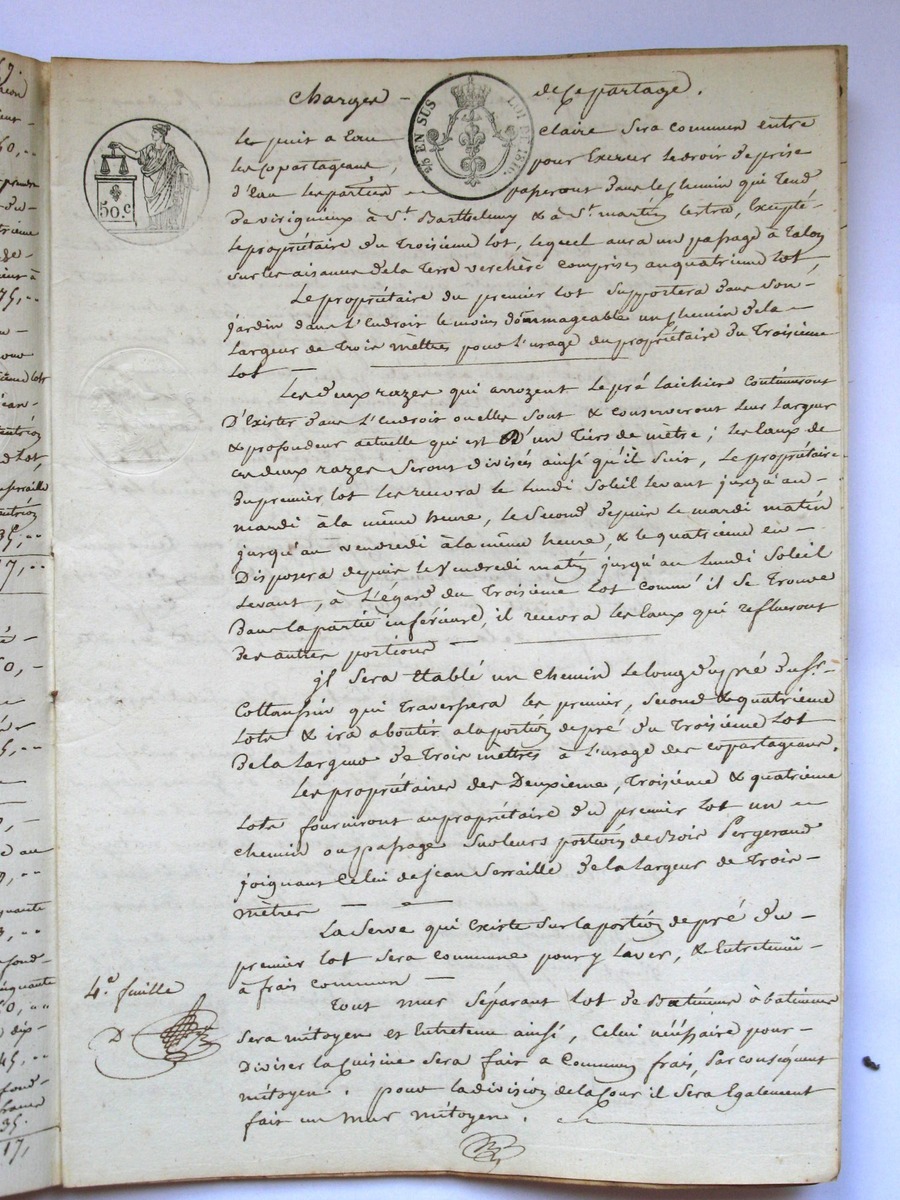 charges - de ce partage.
50 c
EN SUS
LOI DE 1816
Le puit à Eau claire Sera commun entre
les copartageans, pour Exercer le droit de prise
d'Eau les parties passeront dans le chemin qui tend
de virigneux à St. Barthelemy & à St. martin lestra, Excepté
le propriétaire du troisième lot, lequel aura un passage à talon
sur les aisances de la terre verchère comprises au quatrieme lot,
Le propriétaire du premier lot Supportera dans Son
jardin dans l'Endroit le moins dommageable un chemin de la
largeur de trois mètres pour l'usage du propriétaire du troisième
lot —
Les deux razes qui arrozent le pré continueront
D'Exister dans l'Endroit ou elles sont & conserveront leur largeur
& profondeur actuelle qui est D'un tiers de mètre; les Eaux de
ces deux razes Seront divisés ainsi qu'il Suit, Le propriétaire
du premier lot les recevra le Lundi Soleil levant jusqu'au
mardi à la même heure, le Second depuis le mardi matin
jusqu'au vendredi à la même heure, & le quatrieme en
Disposera depuis le Vendredi matin jusqu'au Lundi Soleil
Levant, à L'égard du troisième lot comm' il Se trouve
Dans la partie inférieure, il recevra les Eaux qui reflueront
Des autres portions —
jl Sera établé un chemin le long du pré du Sr.
qui traversera les premier, Second & quatrieme
lots & ira aboutir a la portion de pré du troisième lot
De la largeur de trois mètres à l'usage des copartageans.
Les propriétaires des Deuxieme, troisième & quatrieme
lots fourniront au propriétaire du premier lot un
chemin ou passage Sur leurs portions de Bois Pergerand
joignant celui de jean Serraille De la largeur de trois
mètres —
La Serve qui Existe Sur la portion de pré du
premier lot Sera commune pour y laver, & Entretenüe
à frais commun —
tout mur Séparant lot de Batiment à batiment
Sera mitoyen et Entretenu ainsi, Celui nécéssaire pour
Diviser la Cuisine Sera fait a Commun frais, Par conséquent
mitoyen. pour la division de la Cour il Sera Également
fait un mur mitoyen.
4.e feuille